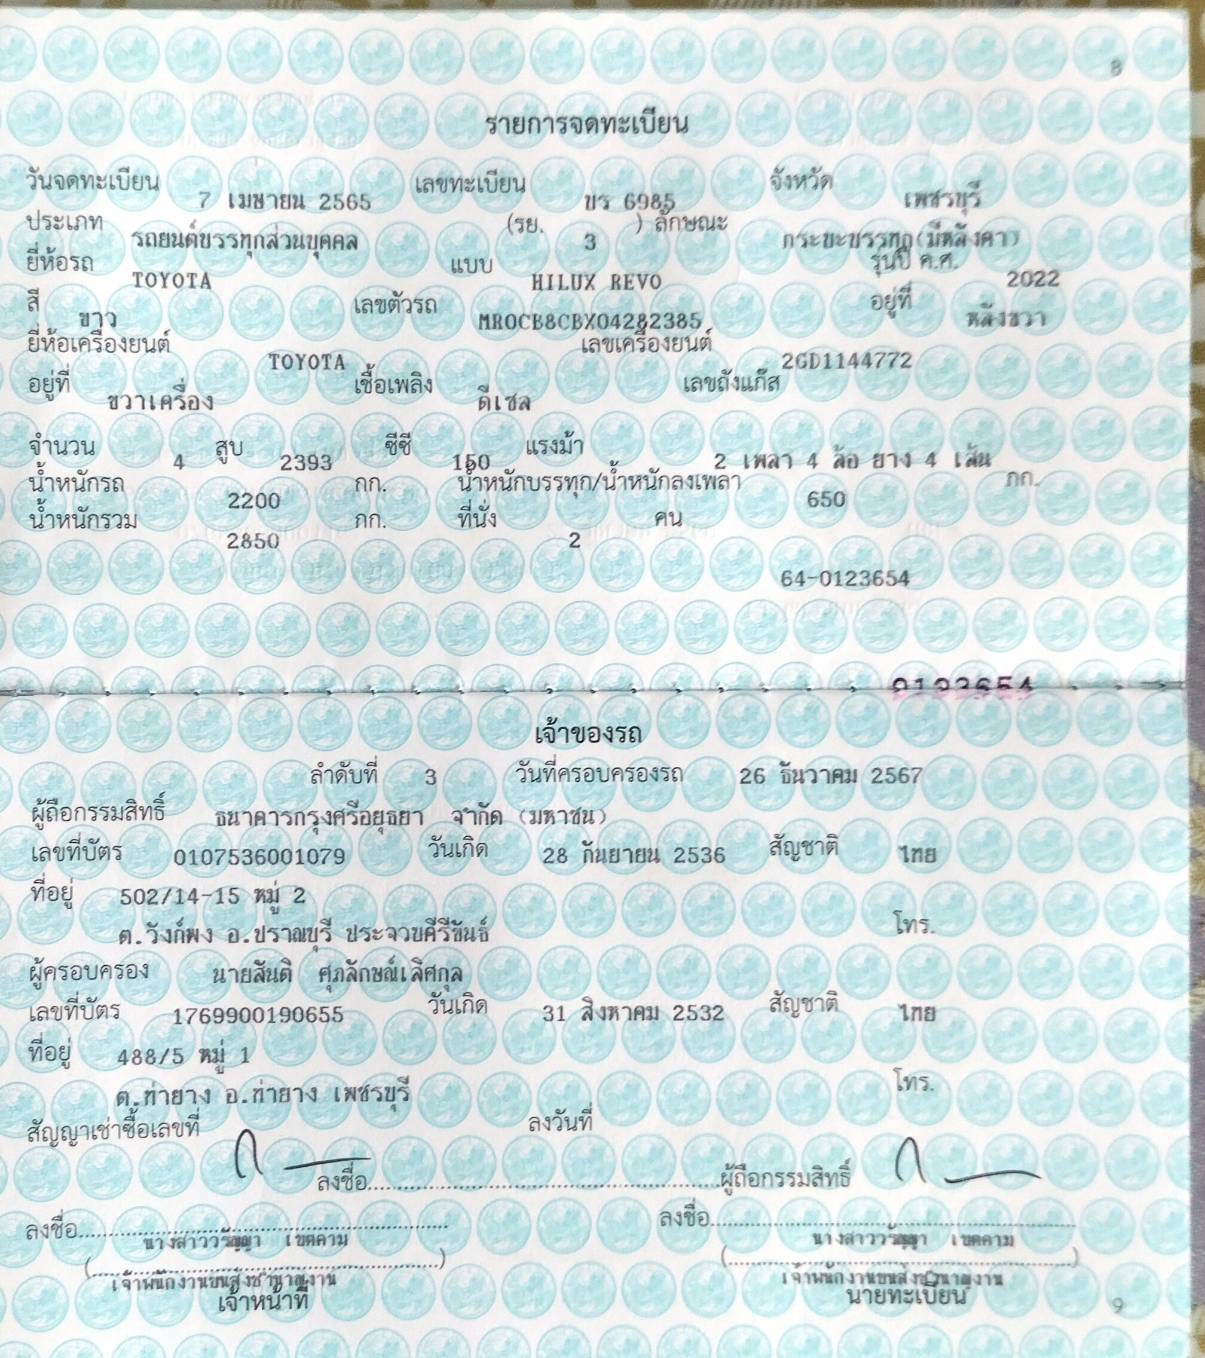 8
รายการจดทะเบียน
วันจดทะเบียน 7 เมษายน 2565 เลขทะเบียน ขร 6985 จังหวัด เพชรบุรี
ประเภท รถยนต์บรรทุกส่วนบุคคล (รย. 3 ) ลักษณะ กระบะบรรทุก(มีหลังคา)
ยี่ห้อรถ TOYOTA แบบ HILUX REVO รุ่นปี ค.ศ. 2022
สี ขาว เลขตัวรถ MR0CB8CBX04282385 อยู่ที่ หลังขวา
ยี่ห้อเครื่องยนต์ TOYOTA เลขเครื่องยนต์ 2GD1144772
อยู่ที่ ขวาเครื่อง เชื้อเพลิง ดีเซล เลขถังแก๊ส
จำนวน 4 สูบ 2393 ซีซี 150 แรงม้า 2 เพลา 4 ล้อ ยาง 4 เส้น
น้ำหนักรถ 2200 กก. น้ำหนักบรรทุก/น้ำหนักลงเพลา 650 กก.
น้ำหนักรวม 2850 กก. ที่นั่ง 2 คน
64-0123654
0123654
เจ้าของรถ
ลำดับที่ 3 วันที่ครอบครองรถ 26 ธันวาคม 2567
ผู้ถือกรรมสิทธิ์ ธนาคารกรุงศรีอยุธยา จำกัด (มหาชน)
เลขที่บัตร 0107536001079 วันเกิด 28 กันยายน 2536 สัญชาติ ไทย
ที่อยู่ 502/14-15 หมู่ 2
ต.วังก์พง อ.ปราณบุรี ประจวบคีรีขันธ์ โทร.
ผู้ครอบครอง นายสันติ ศุภลักษณ์เลิศกุล
เลขที่บัตร 1769900190655 วันเกิด 31 สิงหาคม 2532 สัญชาติ ไทย
ที่อยู่ 488/5 หมู่ 1
ต.ท่ายาง อ.ท่ายาง เพชรบุรี โทร.
สัญญาเช่าซื้อเลขที่ ลงวันที่
ลงชื่อ ผู้ถือกรรมสิทธิ์
ลงชื่อ ลงชื่อ
นางสาววรัญญา เขตคาม นางสาววรัญญา เขตคาม
เจ้าพนักงานขนส่งชำนาญงาน เจ้าพนักงานขนส่งชำนาญงาน
เจ้าหน้าที่ นายทะเบียน
9